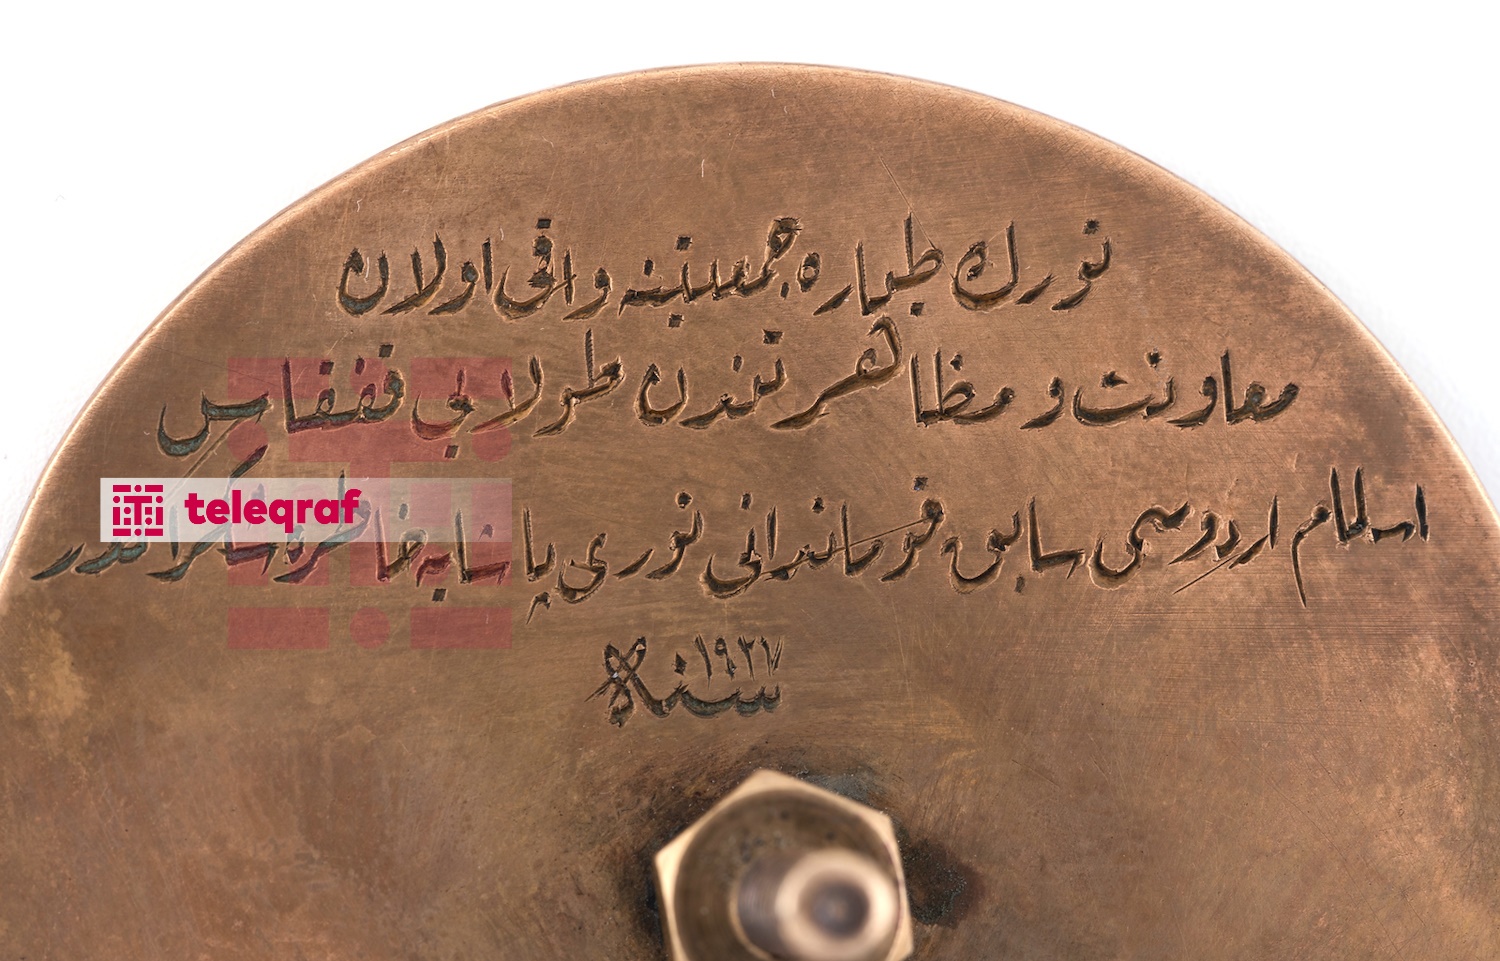 تورك طیاره جمعیتینه واقع اولان
معاونت و مظاهرتندن طولایی قفقاس
اسلام اردوسی سابق قوماندانی نوری پاشایه خاطرهٔ شكراندر
سنه ١٩٢٧
teleqraf